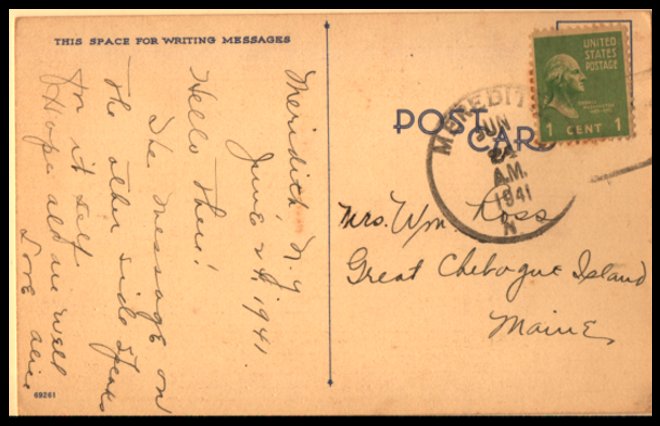 THIS SPACE FOR WRITING MESSAGES
Meridith, N.Y
June 24, 1941.
Hello Ther!
The message on
the other side speaks
for it self.
Hope all are well
Love Alice
69261
POST
CARD
UNITED
STATES
POSTAGE
1 CENT 1
MEREDIT
JUN
24
A.M.
1941
N
Mrs. Wm. Ross
Great Chebogue Island
Maine